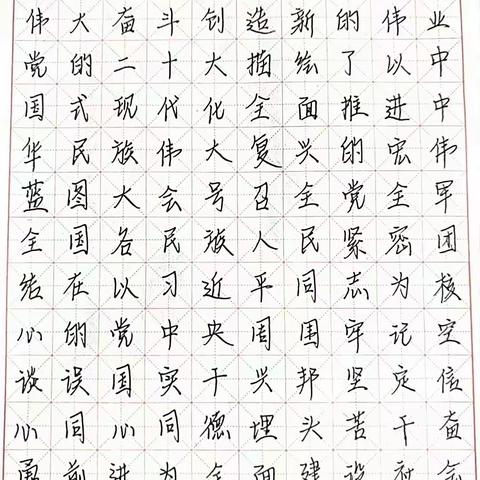 伟大奋斗创造新的伟业
党的二十大描绘了以中
国式现代化全面推进中
华民族伟大复兴的宏伟
蓝图大会号召全党全军
全国各民族人民紧密团
结在以习近平同志为核
心的党中央周围牢记空
谈误国实干兴邦坚定信
心同心同德埋头苦干奋
勇前进为全面建设社会